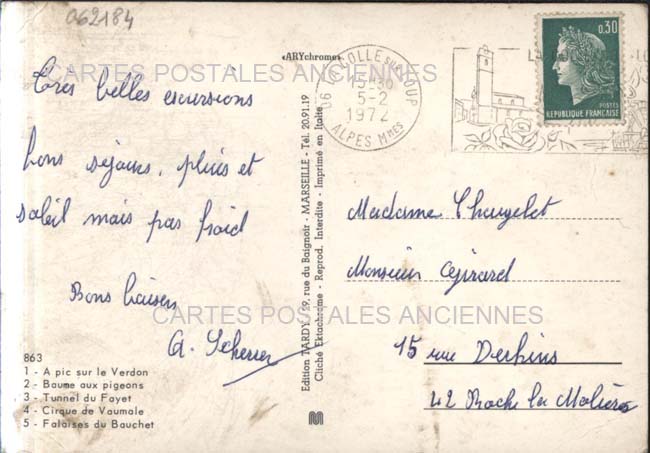 062184
«ARYchrome»
CARTES POSTALES ANCIENNES
Très belles excursions
bons séjours, pluies et
soleil mais pas froid
Bons baisers
A. Scherrer
CARTES POSTALES ANCIENNES
863
1 - A pic sur le Verdon
2 - Baume aux pigeons
3 - Tunnel du Fayet
4 - Cirque de Vaumale
5 - Falaises du Bauchet
Edition TARDY, 39, rue du Baignoir - MARSEILLE - Tél. 20.91.19
Cliché Ektachrome - Reprod. Interdite - Imprimé en Italie
06 LA COLLE SUR LOUP
5-2
1972
ALPES Mmes
0,30
POSTES
REPUBLIQUE FRANÇAISE
Madame
Monsieur Girard
15 rue
42 Roche la Molière